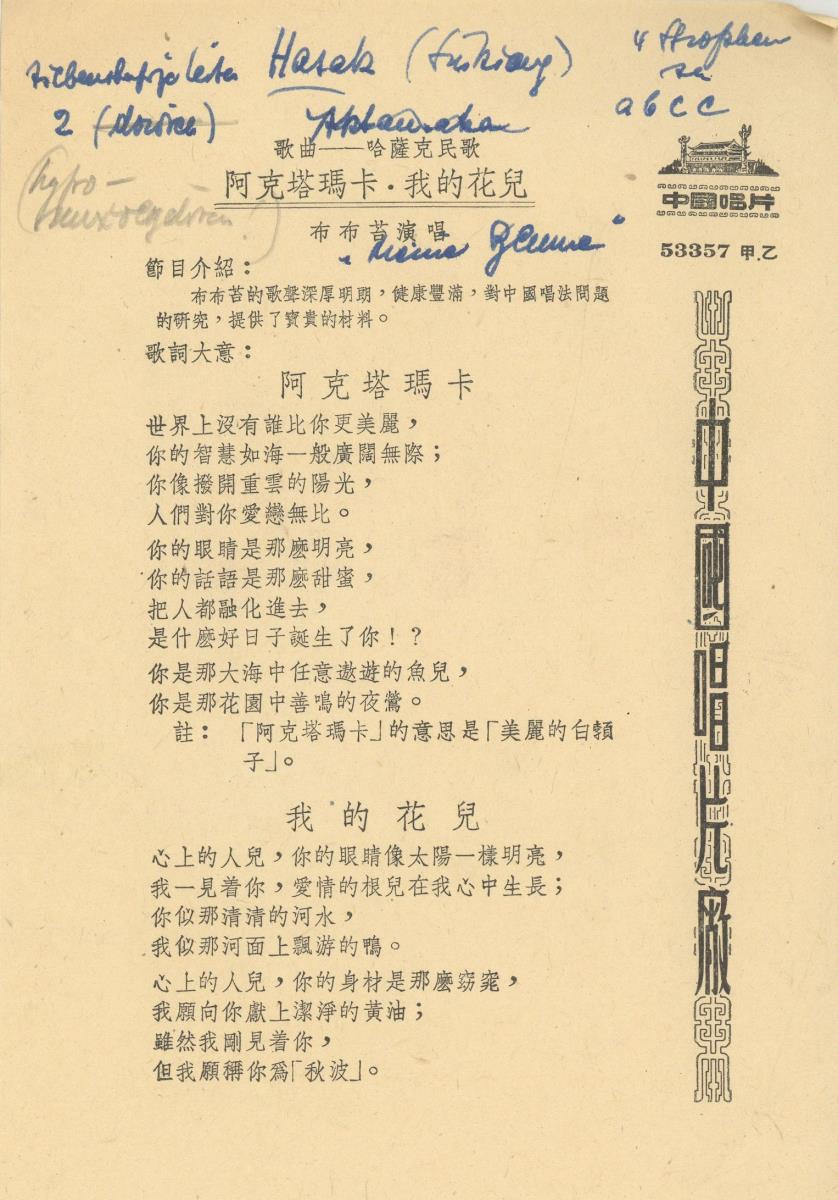 Hasak
4 Strophen
2
abcc
歌曲——哈薩克民歌
阿克塔瑪卡·我的花兒
布布苔演唱
中國唱片
53357 甲.乙
節目介紹：
布布苔的歌聲深厚明朗，健康豐滿，對中國唱法問題
的研究，提供了寶貴的材料。
歌詞大意：
阿克塔瑪卡
世界上沒有誰比你更美麗，
你的智慧如海一般廣闊無際；
你像撥開重雲的陽光，
人們對你愛戀無比。
你的眼睛是那麽明亮，
你的話語是那麽甜蜜，
把人都融化進去，
是什麽好日子誕生了你！？
你是那大海中任意遨遊的魚兒，
你是那花園中善鳴的夜鶯。
註：「阿克塔瑪卡」的意思是「美麗的白頸
子」。
我的花兒
心上的人兒，你的眼睛像太陽一樣明亮，
我一見着你，愛情的根兒在我心中生長；
你似那清清的河水，
我似那河面上飄游的鴨。
心上的人兒，你的身材是那麽窈窕，
我願向你獻上潔淨的黃油；
雖然我剛見着你，
但我願稱你爲「秋波」。
中國唱片廠